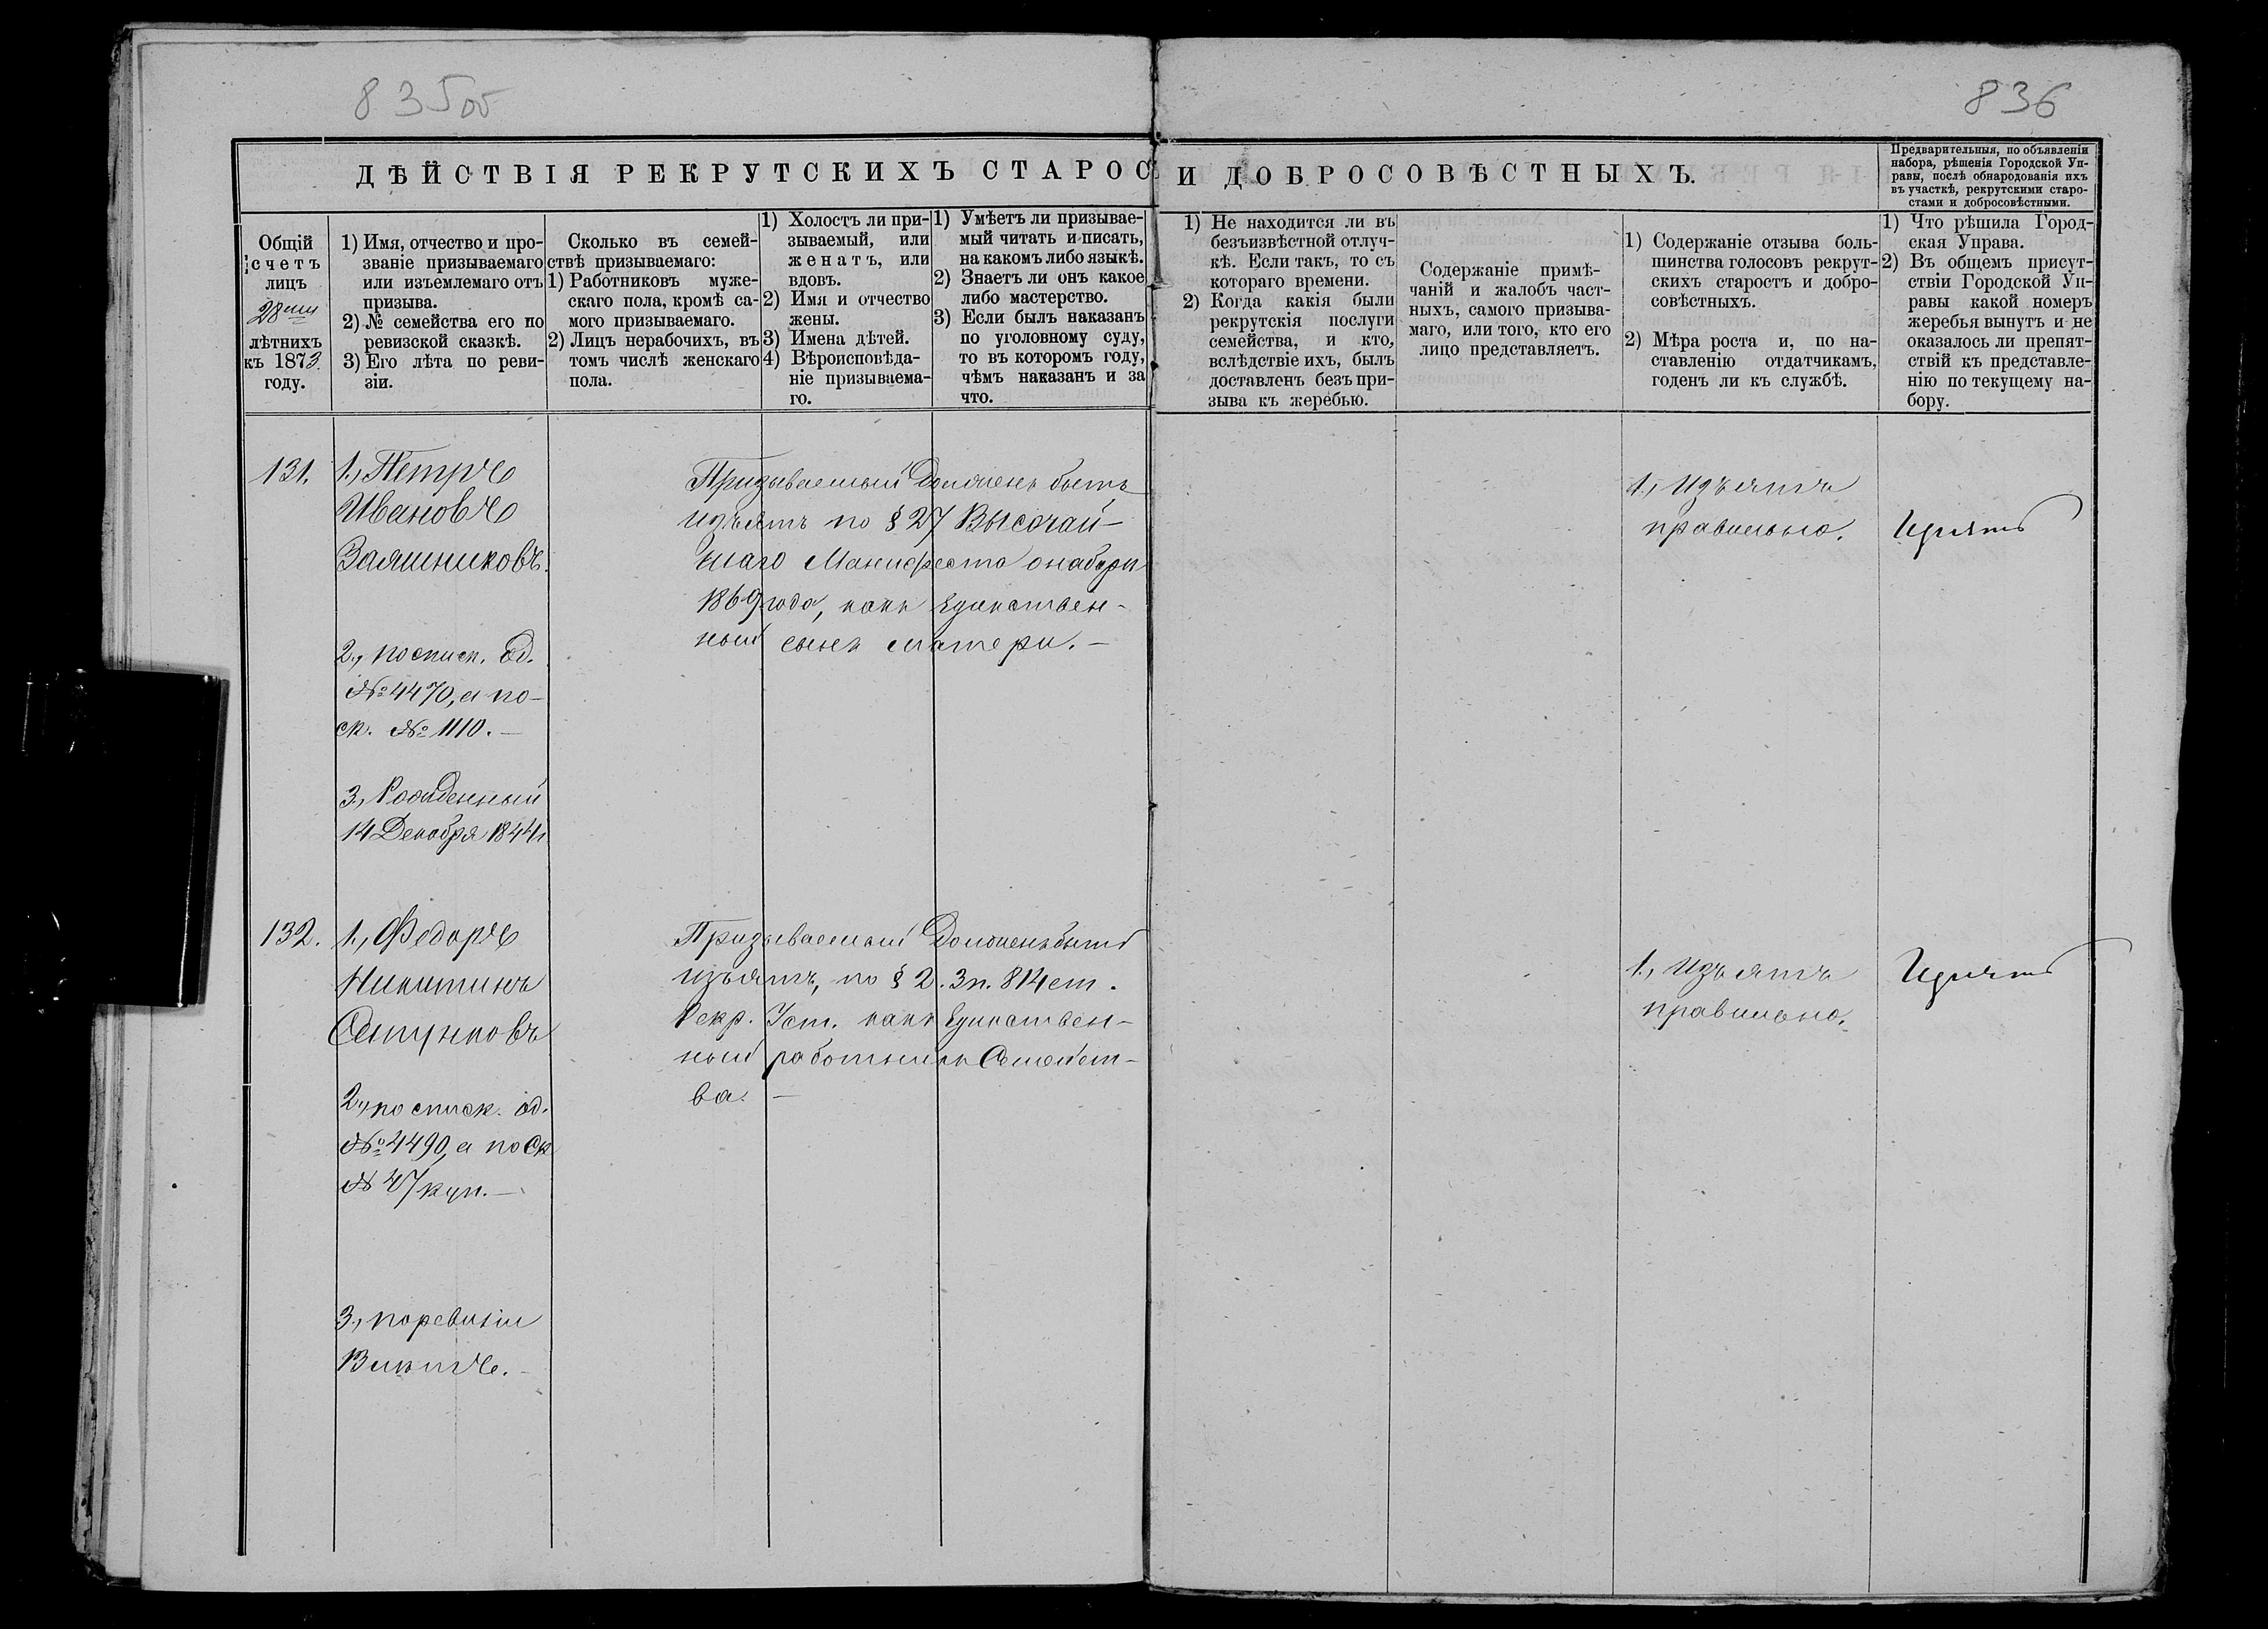 835об
836
ДѢЙСТВІЯ РЕКРУТСКИХЪ СТАРОС И ДОБРОСОВѢСТНЫХЪ.
Предварительныя, по объявленіи
набора, рѣшенія Городской Уп-
равы, послѣ обнародованія ихъ
въ участкѣ, рекрутскими старо-
стами и добросовѣстными.
Общій
счетъ
лицъ
28ми
лѣтнихъ
къ 1873
году.
1) Имя, отчество и про-
званіе призываемаго
или изъемлемаго отъ
призыва.
2) № семейства его по
ревизской сказкѣ.
3) Его лѣта по реви-
зіи.
Сколько въ семей-
ствѣ призываемаго:
1) Работниковъ муже-
скаго пола, кромѣ са-
мого призываемаго.
2) Лицъ нерабочихъ, въ
томъ числѣ женскаго
пола.
1) Холостъ ли при-
зываемый, или
женатъ, или
вдовъ.
2) Имя и отчество
жены.
3) Имена дѣтей.
4) Вѣроисповѣда-
ніе призываема-
го.
1) Умѣетъ ли призывае-
мый читать и писать,
на какомъ либо языкѣ.
2) Знаетъ ли онъ какое
либо мастерство.
3) Если былъ наказанъ
по уголовному суду,
то въ которомъ году,
чѣмъ наказанъ и за
что.
1) Не находится ли въ
безъизвѣстной отлуч-
кѣ. Если такъ, то съ
котораго времени.
2) Когда какія были
рекрутскія послуги
семейства, и кто,
вслѣдствіе ихъ, былъ
доставленъ безъ при-
зыва къ жеребью.
Содержаніе примѣ-
чаній и жалобъ част-
ныхъ, самого призыва-
маго, или того, кто его
лицо представляетъ.
1) Содержаніе отзыва боль-
шинства голосовъ рекрут-
скихъ старостъ и добро-
совѣстныхъ.
2) Мѣра роста и, по на-
ставленію отдатчикамъ,
годенъ ли къ службѣ.
1) Что рѣшила Город-
ская Управа.
2) Въ общемъ присут-
ствіи Городской Уп-
равы какой номеръ
жеребья вынутъ и не
оказалось ли препят-
ствій къ представле-
нію по текущему на-
бору.
131.
1., Петръ
Ивановъ
2., по списк. Об.
№ 4470, а по
ск. № 1110. —
3, Рожденный
14 Декабря 1844г
Призываемый Долженъ быть
изъятъ по § 27 Высочай-
шаго Манифеста о наборѣ
1869 года, какъ Единствен-
ный сынъ матери. —
1., Изъятъ
правильно.
Изъятъ
132.
1., Федоръ
Никитинъ
2., по списк. об.
№ 4490, а по Ск
№ 47 куп. —
3., по ревизіи
Призываемый Долженъ быть
изъятъ, по § 2. 3 п. 814 ст.
Рекр. Уст. какъ Единствен-
ный работникъ Семейст-
ва. —
1., Изъятъ
правильно.
Изъятъ